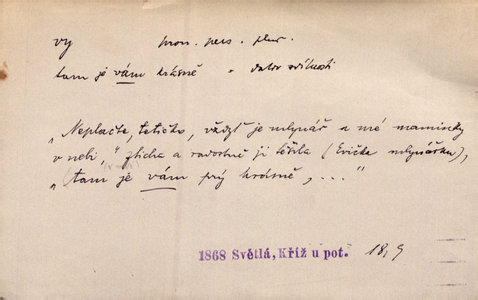 vy pron. pers. plur.
tam je vám krásně - dativ sdílnosti
„Neplačte, tetičko, vždyť je mlynář u mé maminky
v nebi,“ zticha a radostně ji těšila (Evička mlynářku),
„tam je vám prý krásně, ...“
1868 Světlá, Kříž u pot. 18,9